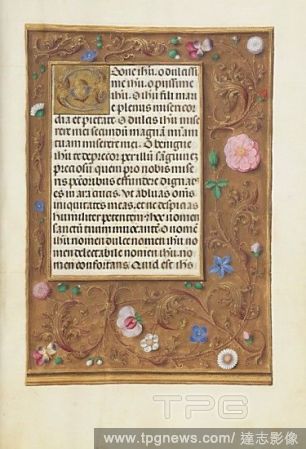 O bone ihu. o dulcissi
me ihu. o piissime
ihu. o ihu fili mari
e plenus misericor
dia et pietate. O dulcis ihu mise
rere mei secundum magnā mīam
tuam miserere mei. O benigne
ihu te deprecor per illū sanguinē
preciosū quem pro nobis mise
ris pctōribus effundere dignat
es in ara crucis. vt abluas oms
iniquitates meas. et ne despicias
humiliter petentem. hoc nomen
sanctū tuum inuocante. O nomen
ihu. nomen dulce nomen ihu. no
men delectabile nomen ihu. no
men confortans. Quid est ihs
TPG
www.tpgnews.com/達志影像